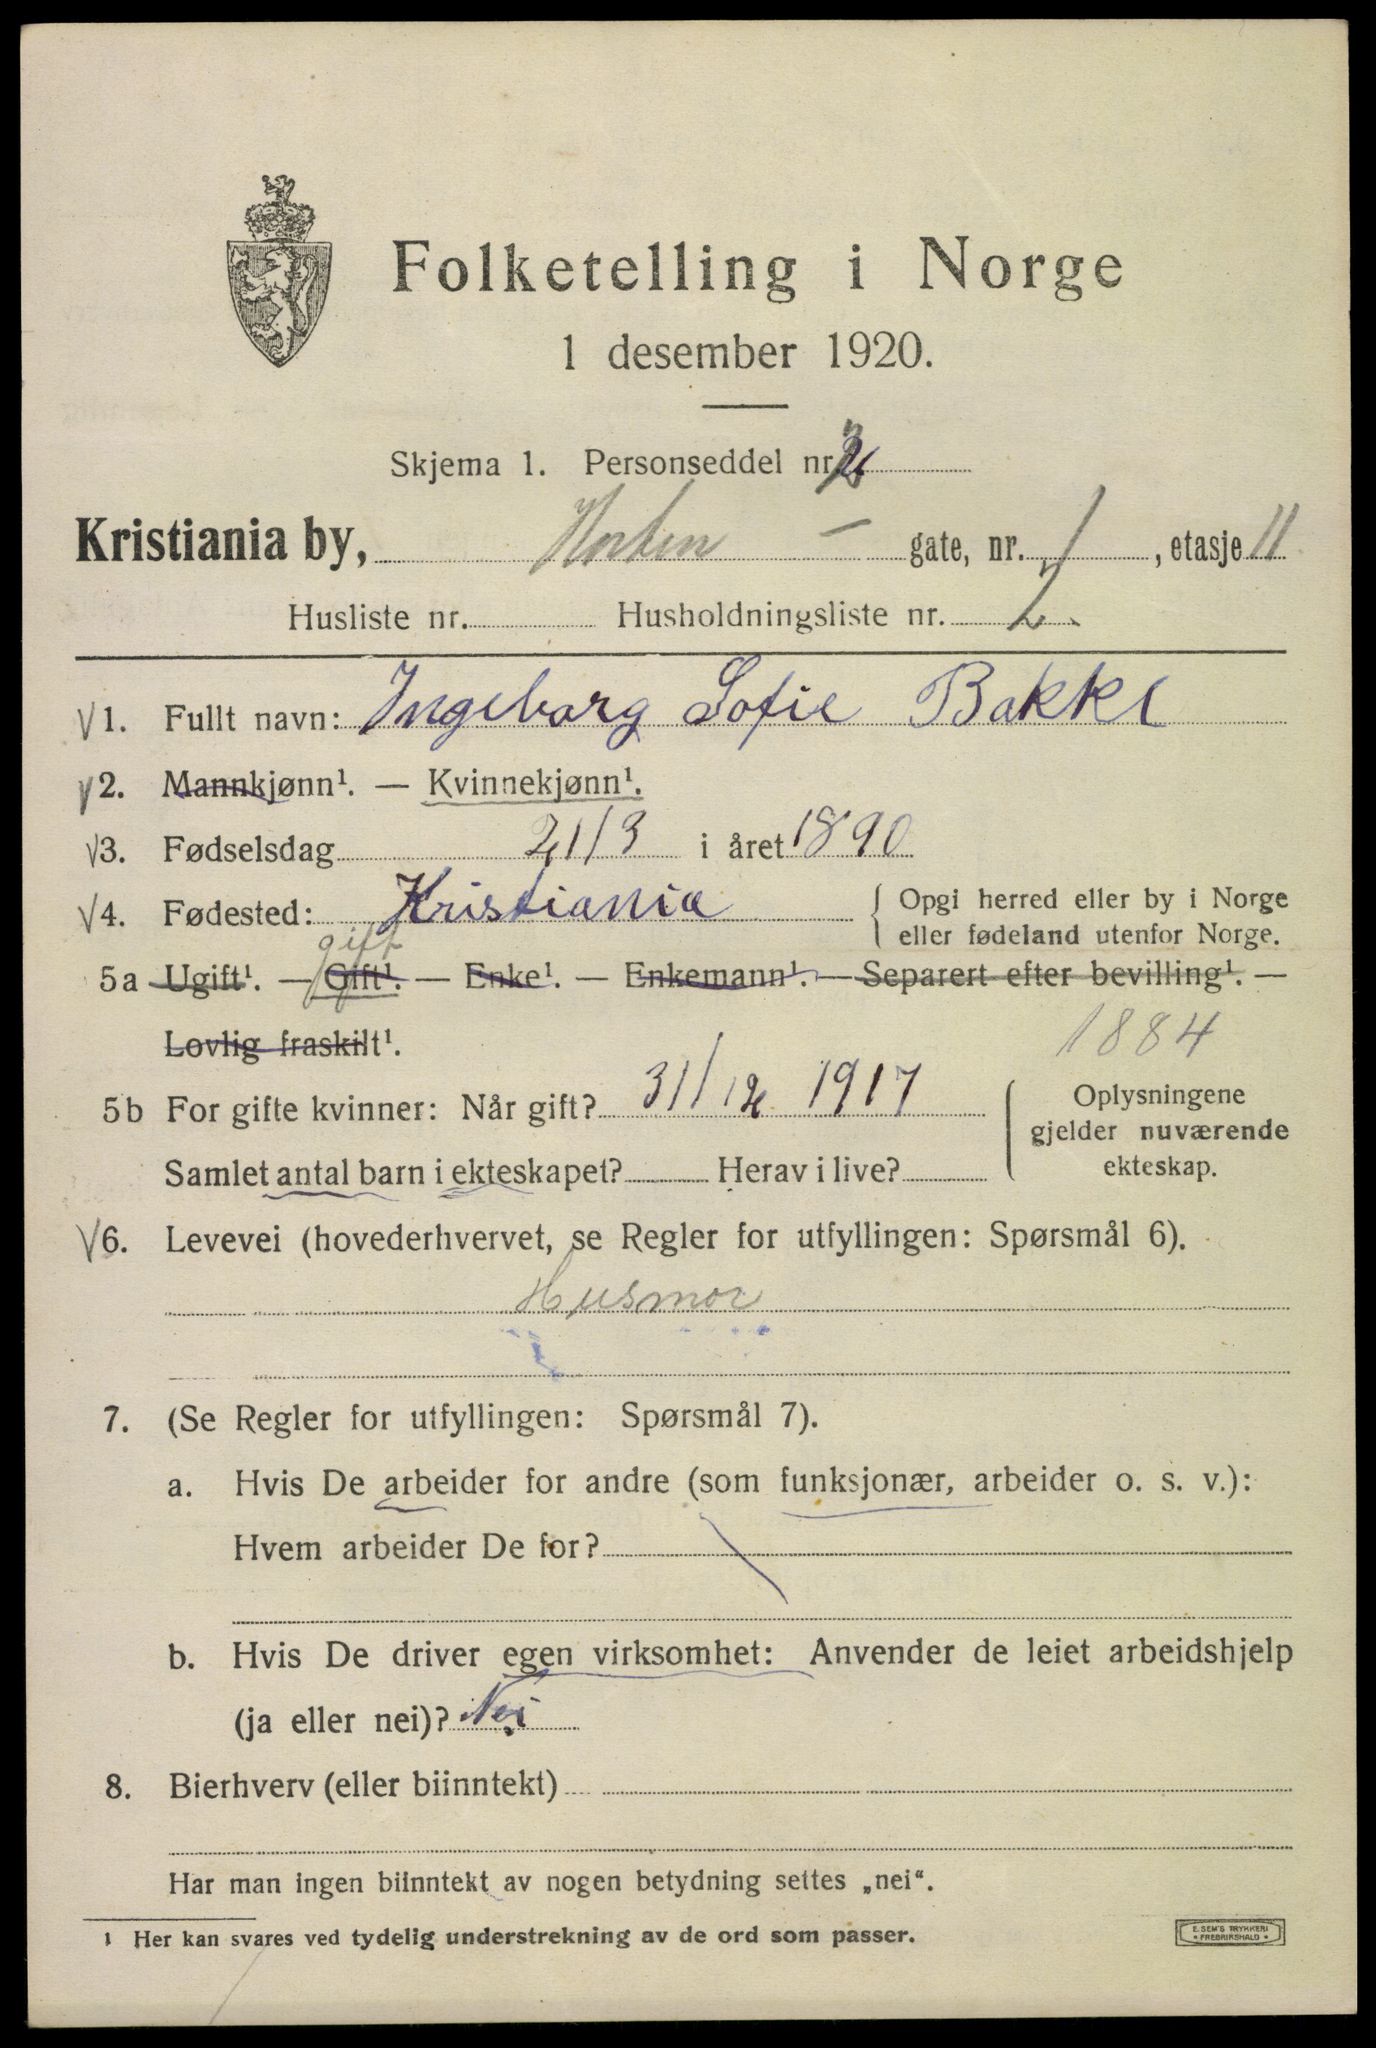 Folketelling i Norge
1 desember 1920.
Skjema 1. Personseddel nr.
Kristiania by, Horten - gate, nr. 1, etasje 11
Husliste nr. Husholdningsliste nr. 2.
√1. Fullt navn: Ingeborg Sofie Bakke
√2. Mannkjønn¹. — Kvinnekjønn¹.
√3. Fødselsdag 21/3 i året 1890
√4. Fødested: Kristiania { Opgi herred eller by i Norge
eller fødeland utenfor Norge.
gift
5a Ugift¹. — Gift¹. — Enke¹. — Enkemann¹. — Separert efter bevilling¹. —
Lovlig fraskilt¹.
1884
5b For gifte kvinner: Når gift? 31/12 1917
Samlet antal barn i ekteskapet? Herav i live?
Oplysningene
gjelder nuværende
ekteskap.
√6. Levevei (hovederhvervet, se Regler for utfyllingen: Spørsmål 6).
Husmor
7. (Se Regler for utfyllingen: Spørsmål 7).
a. Hvis De arbeider for andre (som funksjonær, arbeider o. s. v.):
Hvem arbeider De for?
b. Hvis De driver egen virksomhet: Anvender de leiet arbeidshjelp
(ja eller nei)? Nei
8. Bierhverv (eller biinntekt)
Har man ingen biinntekt av nogen betydning settes „nei“.
1 Her kan svares ved tydelig understrekning av de ord som passer.
E. SEM'S TRYKKERI
* FREDRIKSHALD *